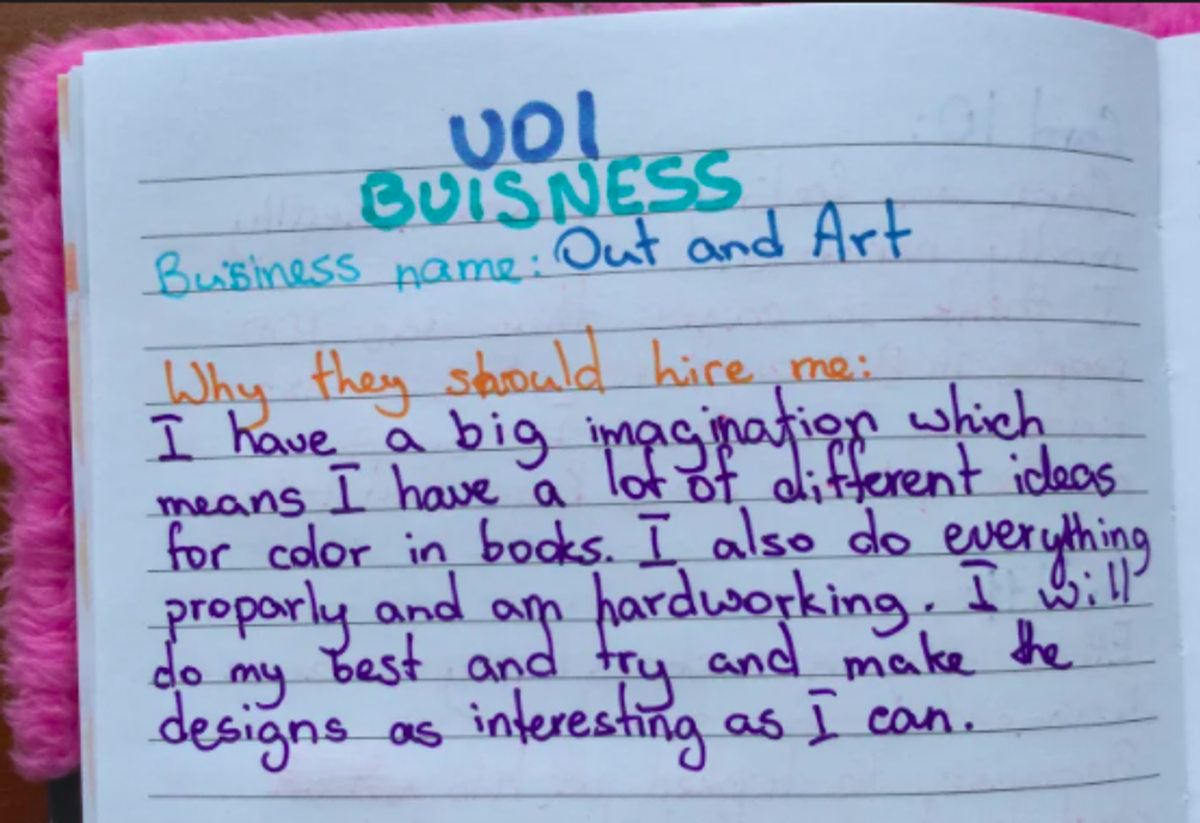 UOI
BUISNESS
Business name: Out and Art
Why they should hire me:
I have a big imagination which
means I have a lot of different ideas
for color in books. I also do everything
proparly and am hardworking. I will
do my best and try and make the
designs as interesting as I can.